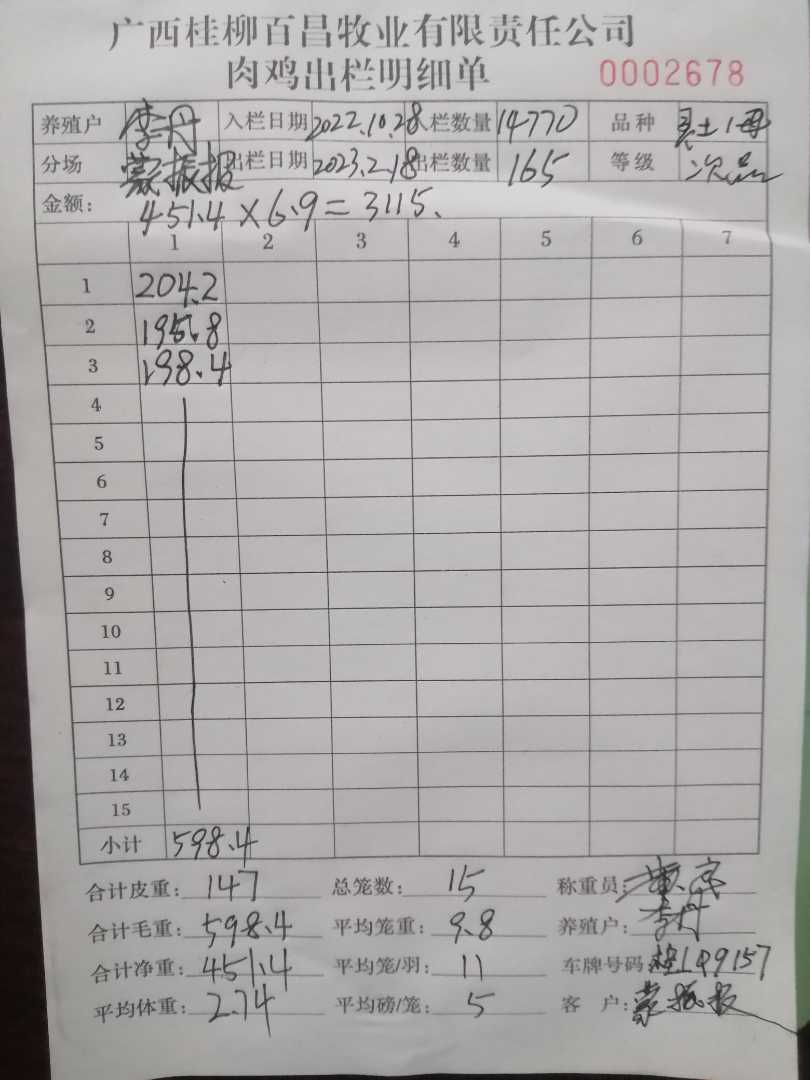 广西桂柳百昌牧业有限责任公司
肉鸡出栏明细单 0002678
养殖户 李丹 入栏日期 2022.10.28 入栏数量 14770 品种 土1母
分场 蒙振报 出栏日期 2023.2.18 出栏数量 165 等级 次品
金额: 451.4×6.9=3115.
1 2 3 4 5 6 7
1 204.2
2 195.8
3 198.4
4
5
6
7
8
9
10
11
12
13
14
15
小计 598.4
合计皮重: 147 总笼数: 15 称重员:
合计毛重: 598.4 平均笼重: 9.8 养殖户: 李丹
合计净重: 451.4 平均笼/羽: 11 车牌号码: 桂LQ9157
平均体重: 2.74 平均磅/笼: 5 客 户: 蒙振报